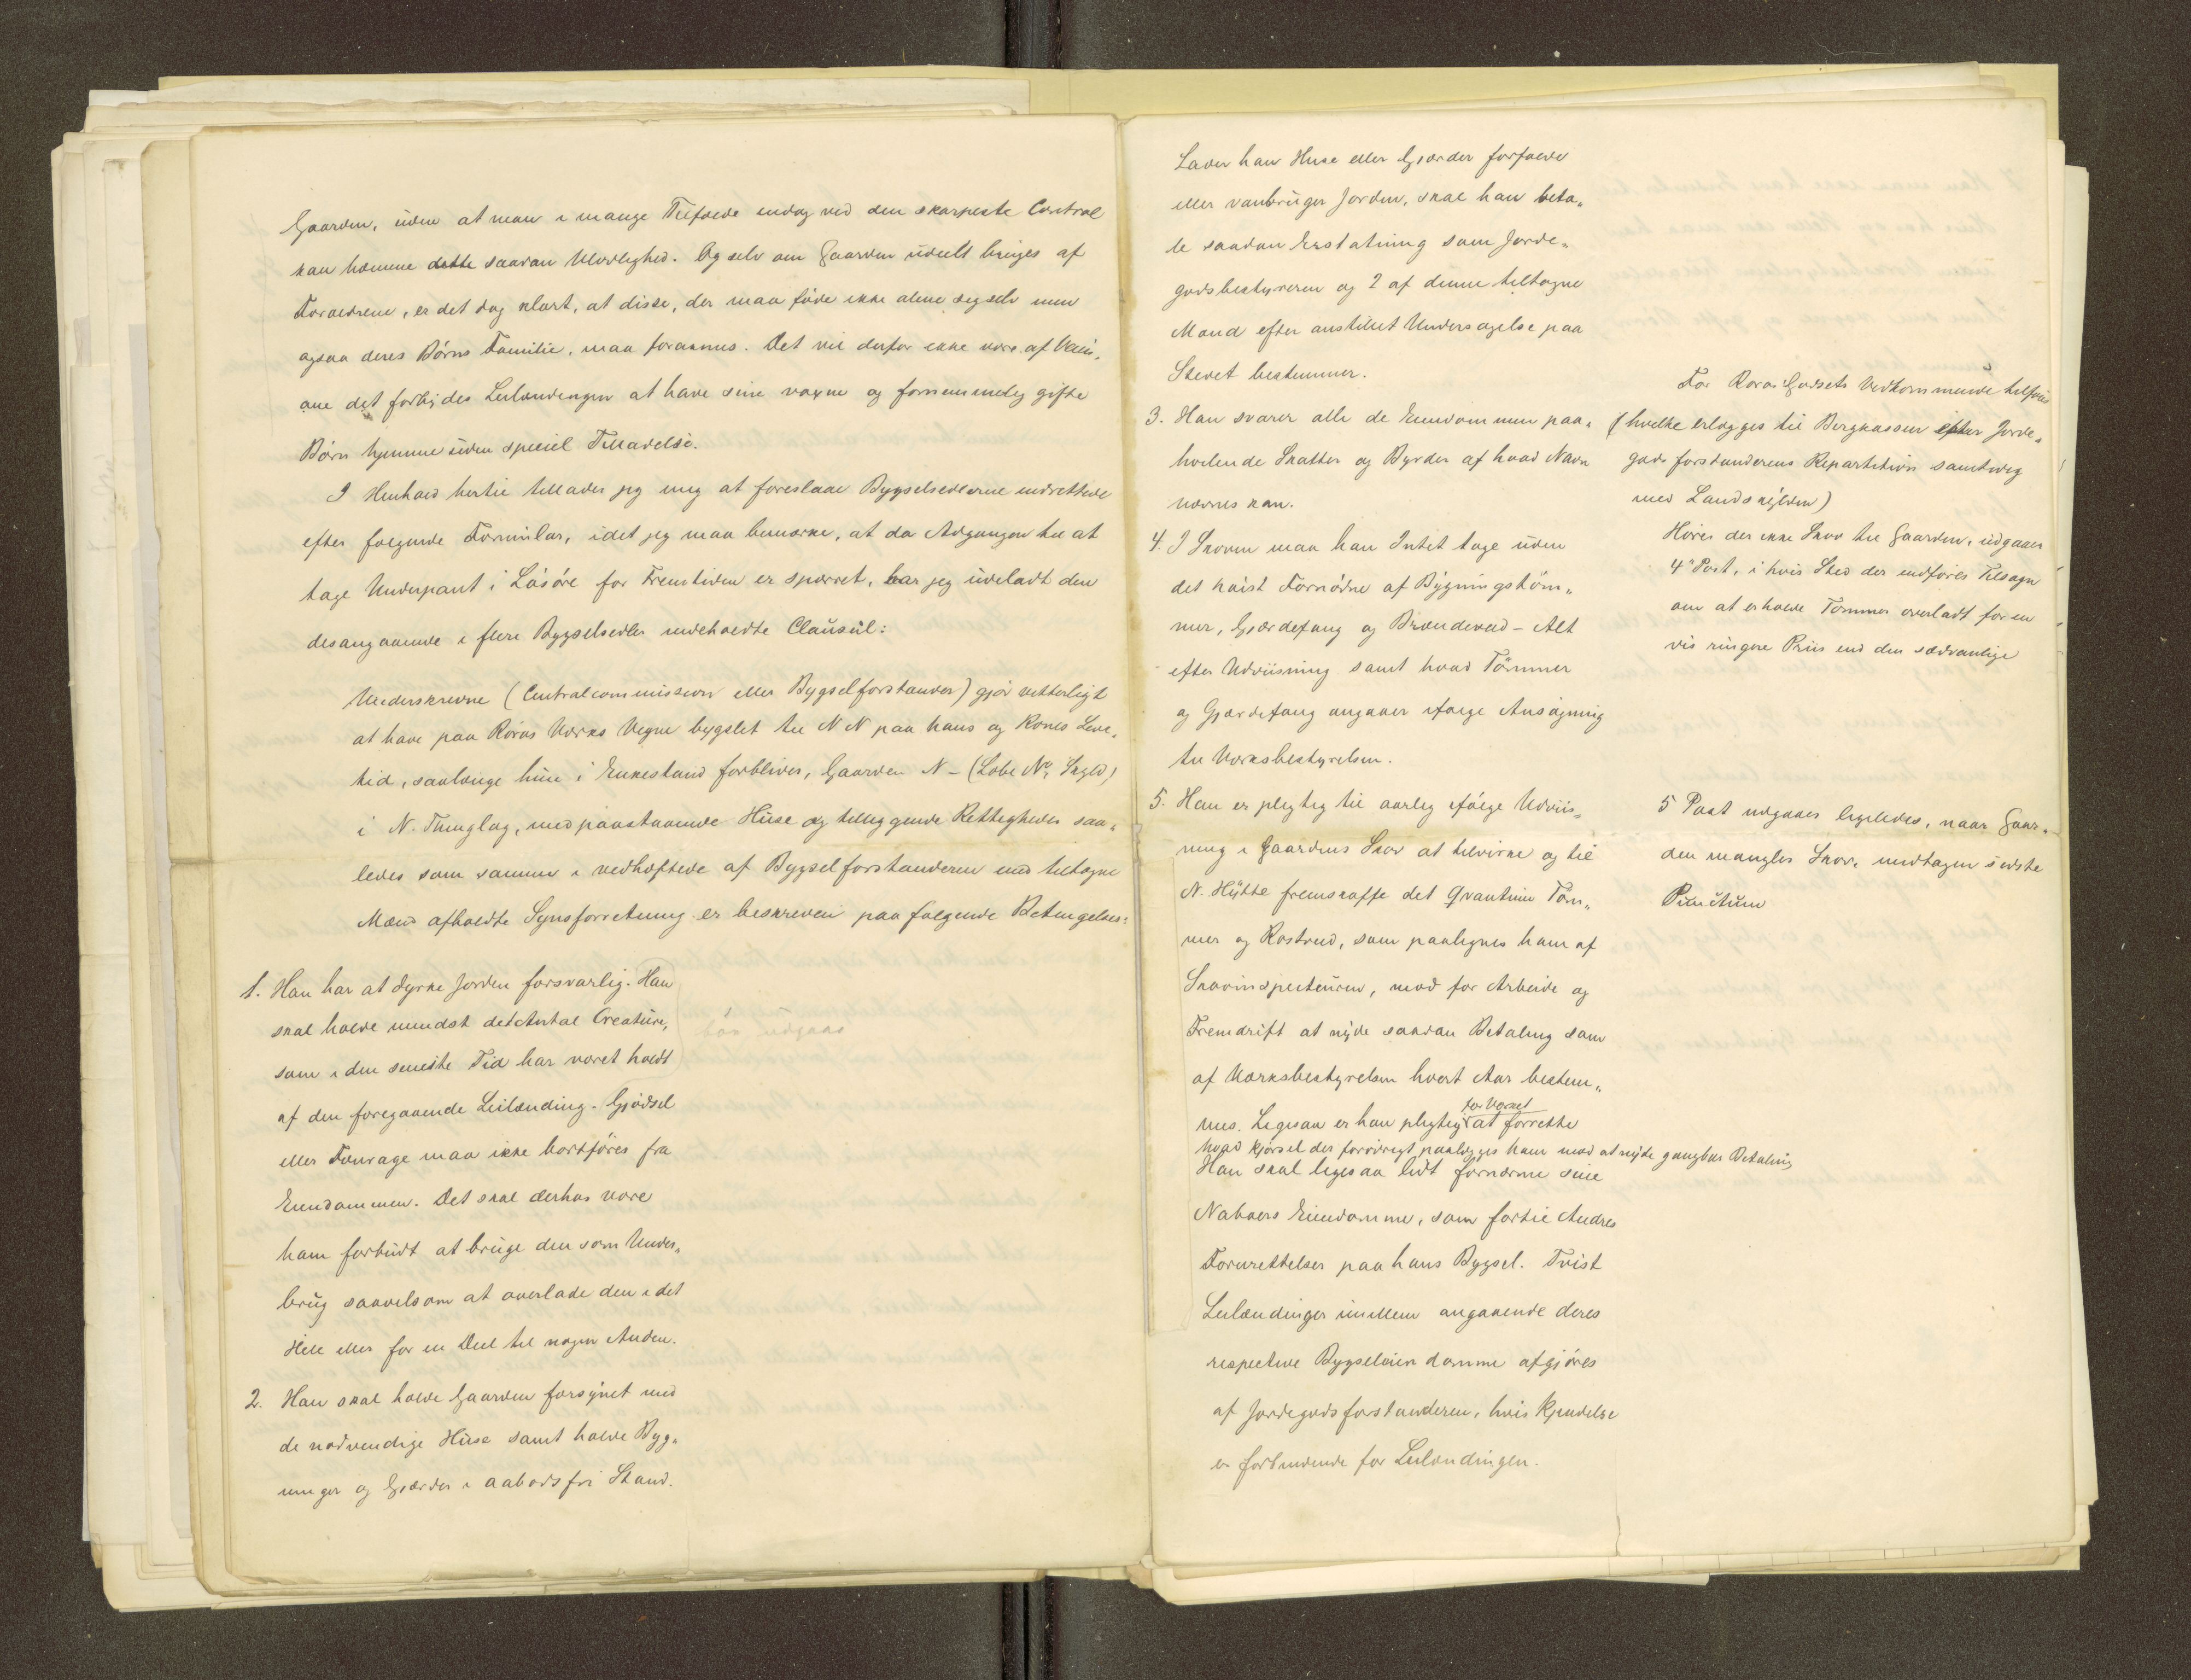 Gaarden, uden at man i mange Tilfælde endog ved den skarpeste Control
kan hæmme dette saadan Ulovlighed. Og selv om Gaarden udeelt bruges af
Forældrene, er det dog klart, at disse, der maa føde ikke alene sig selv men
ogsaa deres Børns Familie, maa forarmes. Det vil derfor ikke være af Veien,
om det forbydes Leilændingen at have sine voxne og fornemmelig gifte
Børn hjemme uden speciel Tilladelse.
I Henhold hertil tillader jeg mig at foreslaae Bygselsedlerne indrettede
efter følgende Formular, idet jeg maa bemærke, at da Adgangen til at
tage Underpant i Løsøre for Fremtiden er spærret, har jeg udeladt den
desangaaende i flere Bygselsedler indeholdte Clausul:
Underskrevne (Centralcommission eller Bygselforstander) gjør vitterligt
at have paa Røros Værks Vegne bygslet til N N paa hans og Kones Leve-
tid, saalænge hun i Enkestand forbliver, Gaarden N - (Løbe No, Skyld)
i N. Thinglag, med paastaaende Huse og tilliggende Rettigheder saa-
ledes som samme i vedhæftede af Bygselforstanderen med tiltagne
Mænd afholdte Synsforretning er beskreven paa følgende Betingelser:
1. Han har at dyrke Jorden forsvarlig. Han
skal holde mindst det Antal Creature,
bør udgaae
som i den seneste Tid har været holdt
af den foregaaende Leilænding. Gjødsel
eller Fourage maa ikke bortføres fra
Eiendommen. Det skal derhos være
ham forbudt at bruge den som Under-
brug saavelsom at overlade den i det
Hele eller for en Deel til nogen Anden.
2. Han skal holde Gaarden forsynet med
de nødvendige Huse samt holde Byg-
ninger og Gjærder i aabodsfri Stand.
Lader han Huse eller Gjærder forfalde
eller vanbruger Jorden, skal han beta-
le saadan Erstatning som Jorde-
godsbestyreren og 2 af denne tiltagne
Mænd efter anstillet Undersøgelse paa
Stedet bestemmer.
3. Han svarer alle de Eiendommen paa-
hvilende Skatter og Byrder af hvad Navn
nævnes kan.
For Røros Godsets Vedkommende tilføies
(hvilke erlægges til Bergkassen efter Jorde-
gods forstanderens Repartition samtidig
med Landskylden)
4. I Skoven maa han Intet tage uden
det høist Fornødne af Bygningstøm-
mer, Gjærdefang og Brændeved - Alt
efter Udviisning samt hvad Tømmer
og Gjærdefang angaaer ifølge Ansøgning
til Værksbestyrelsen.
Hører der ikke Skov til Gaarden, udgaaer
4de Post, i hvis Sted der indføres Tilsagn
om at erholde Tømmer overladt for en
vis ringere Priis end den sædvanlige
5. Han er pligtig til aarlig ifølge Udviis-
ning i Gaardens Skov at tilvirke og til
N. Hytte fremskaffe det Qvantum Tøm-
mer og Røstved, som paalignes ham af
Skovinspecteuren, mod for Arbeide og
Fremdrift at nyde saadan Betaling som
af Værksbestyrelsen hvert Aar bestem-
mes. Ligesaa er han pligtig for Værket at forrette
hvad Kjørsel der forøvrigt paalægges ham mod at nyde gangbar Betaling
Han skal ligesaa lidt fornærme sine
Naboers Eiendomme, som fortie Andres
Forurettelser paa hans Bygsel. Tvist
Leilændinger imellem angaaende deres
respective Bygseleiendomme afgjøres
af Jordegodsforstanderen, hvis Kjendelse
er forbindende for Leilændingen.
5 Post udgaaer ligeledes, naar Gaar-
den mangler Skov, undtagen sidste
Punctum